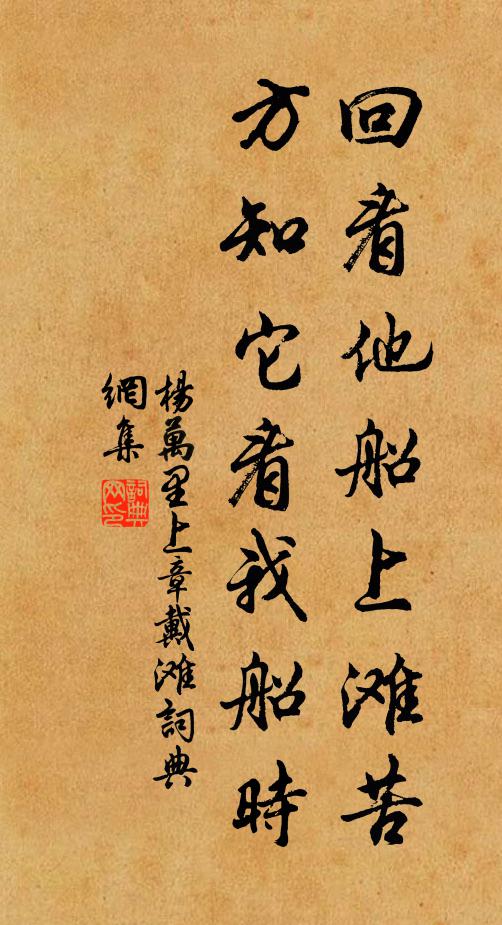 回看他船上滩苦
方知它看我船時
楊萬里上章戴滩詞典
網集
詞典
网印